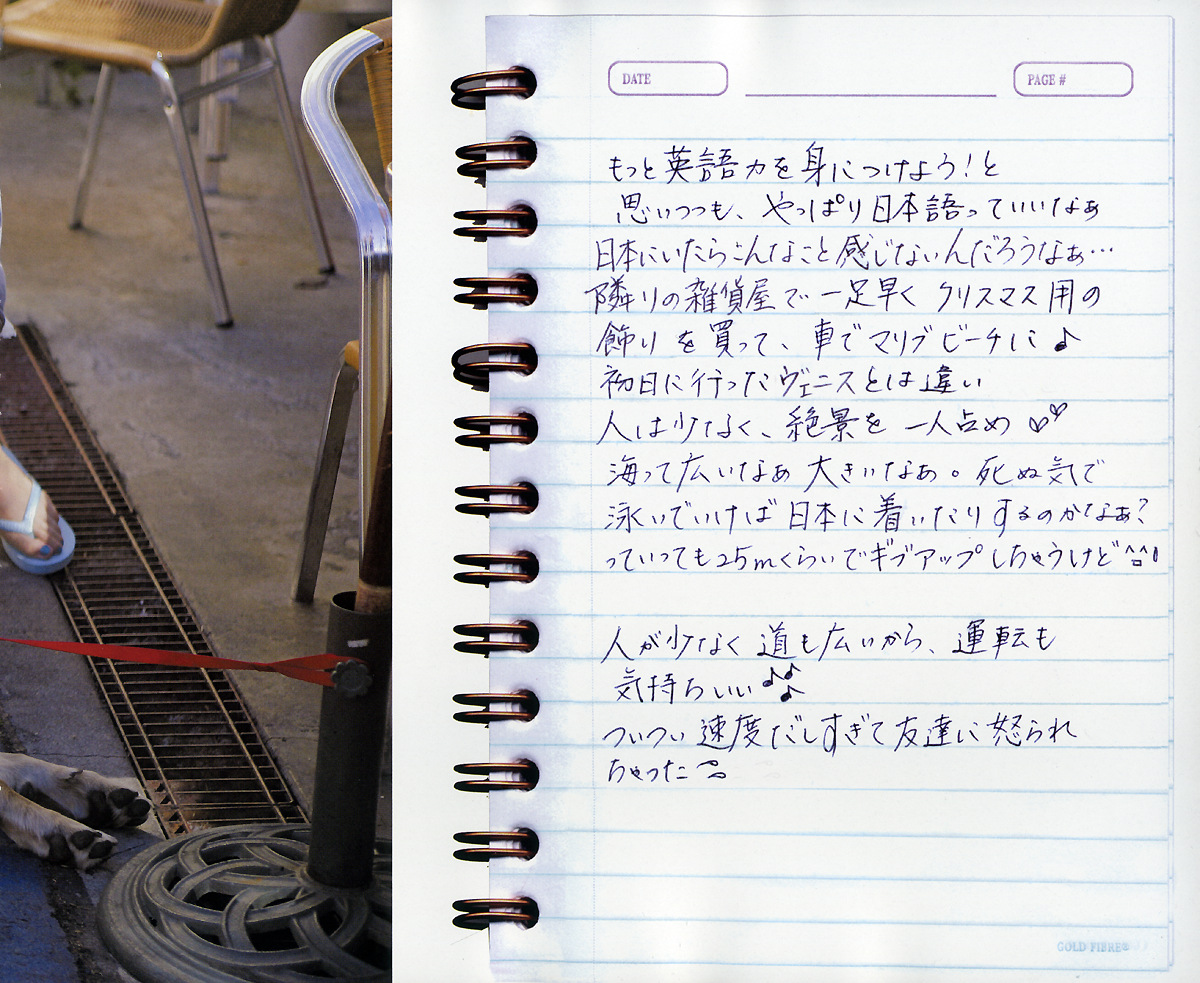 DATE
PAGE #
もっと英語力を身につけよう!と
思いつつも、やっぱり日本語っていいなぁ
日本にいたらこんなこと感じないんだろうなぁ…
隣りの雑貨屋で一足早く クリスマス用の
飾りを買って、車でマリブビーチに♪
初日に行ったヴェニスとは違い
人は少なく、絶景を一人占め♡♡
海って広いなぁ 大きいなぁ。死ぬ気で
泳いでいけば日本に着いたりするのかなぁ?
っていっても25mくらいでギブアップしちゃうけど^^;
人が少なく道も広いから、運転も
気持ちいい♪♪♪
ついつい速度だしすぎて友達に怒られ
ちゃった
GOLD FIBRE®